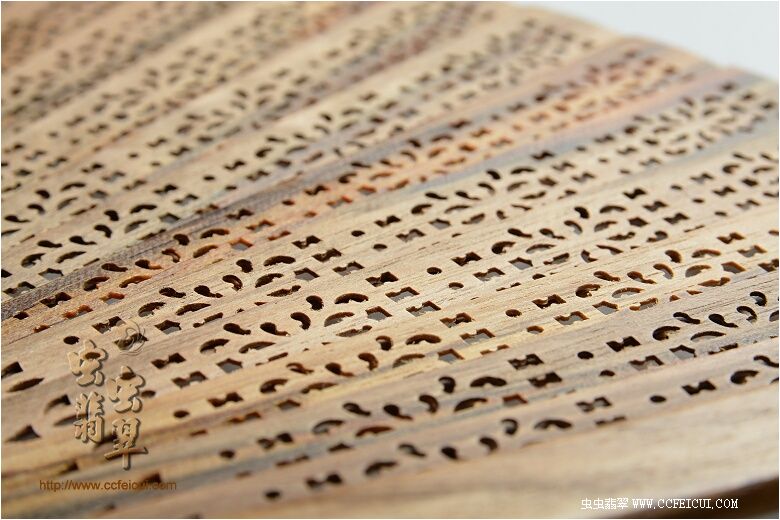 虫虫翡翠
http://www.ccfeicui.com
虫虫翡翠 WWW.CCFEICUI.COM